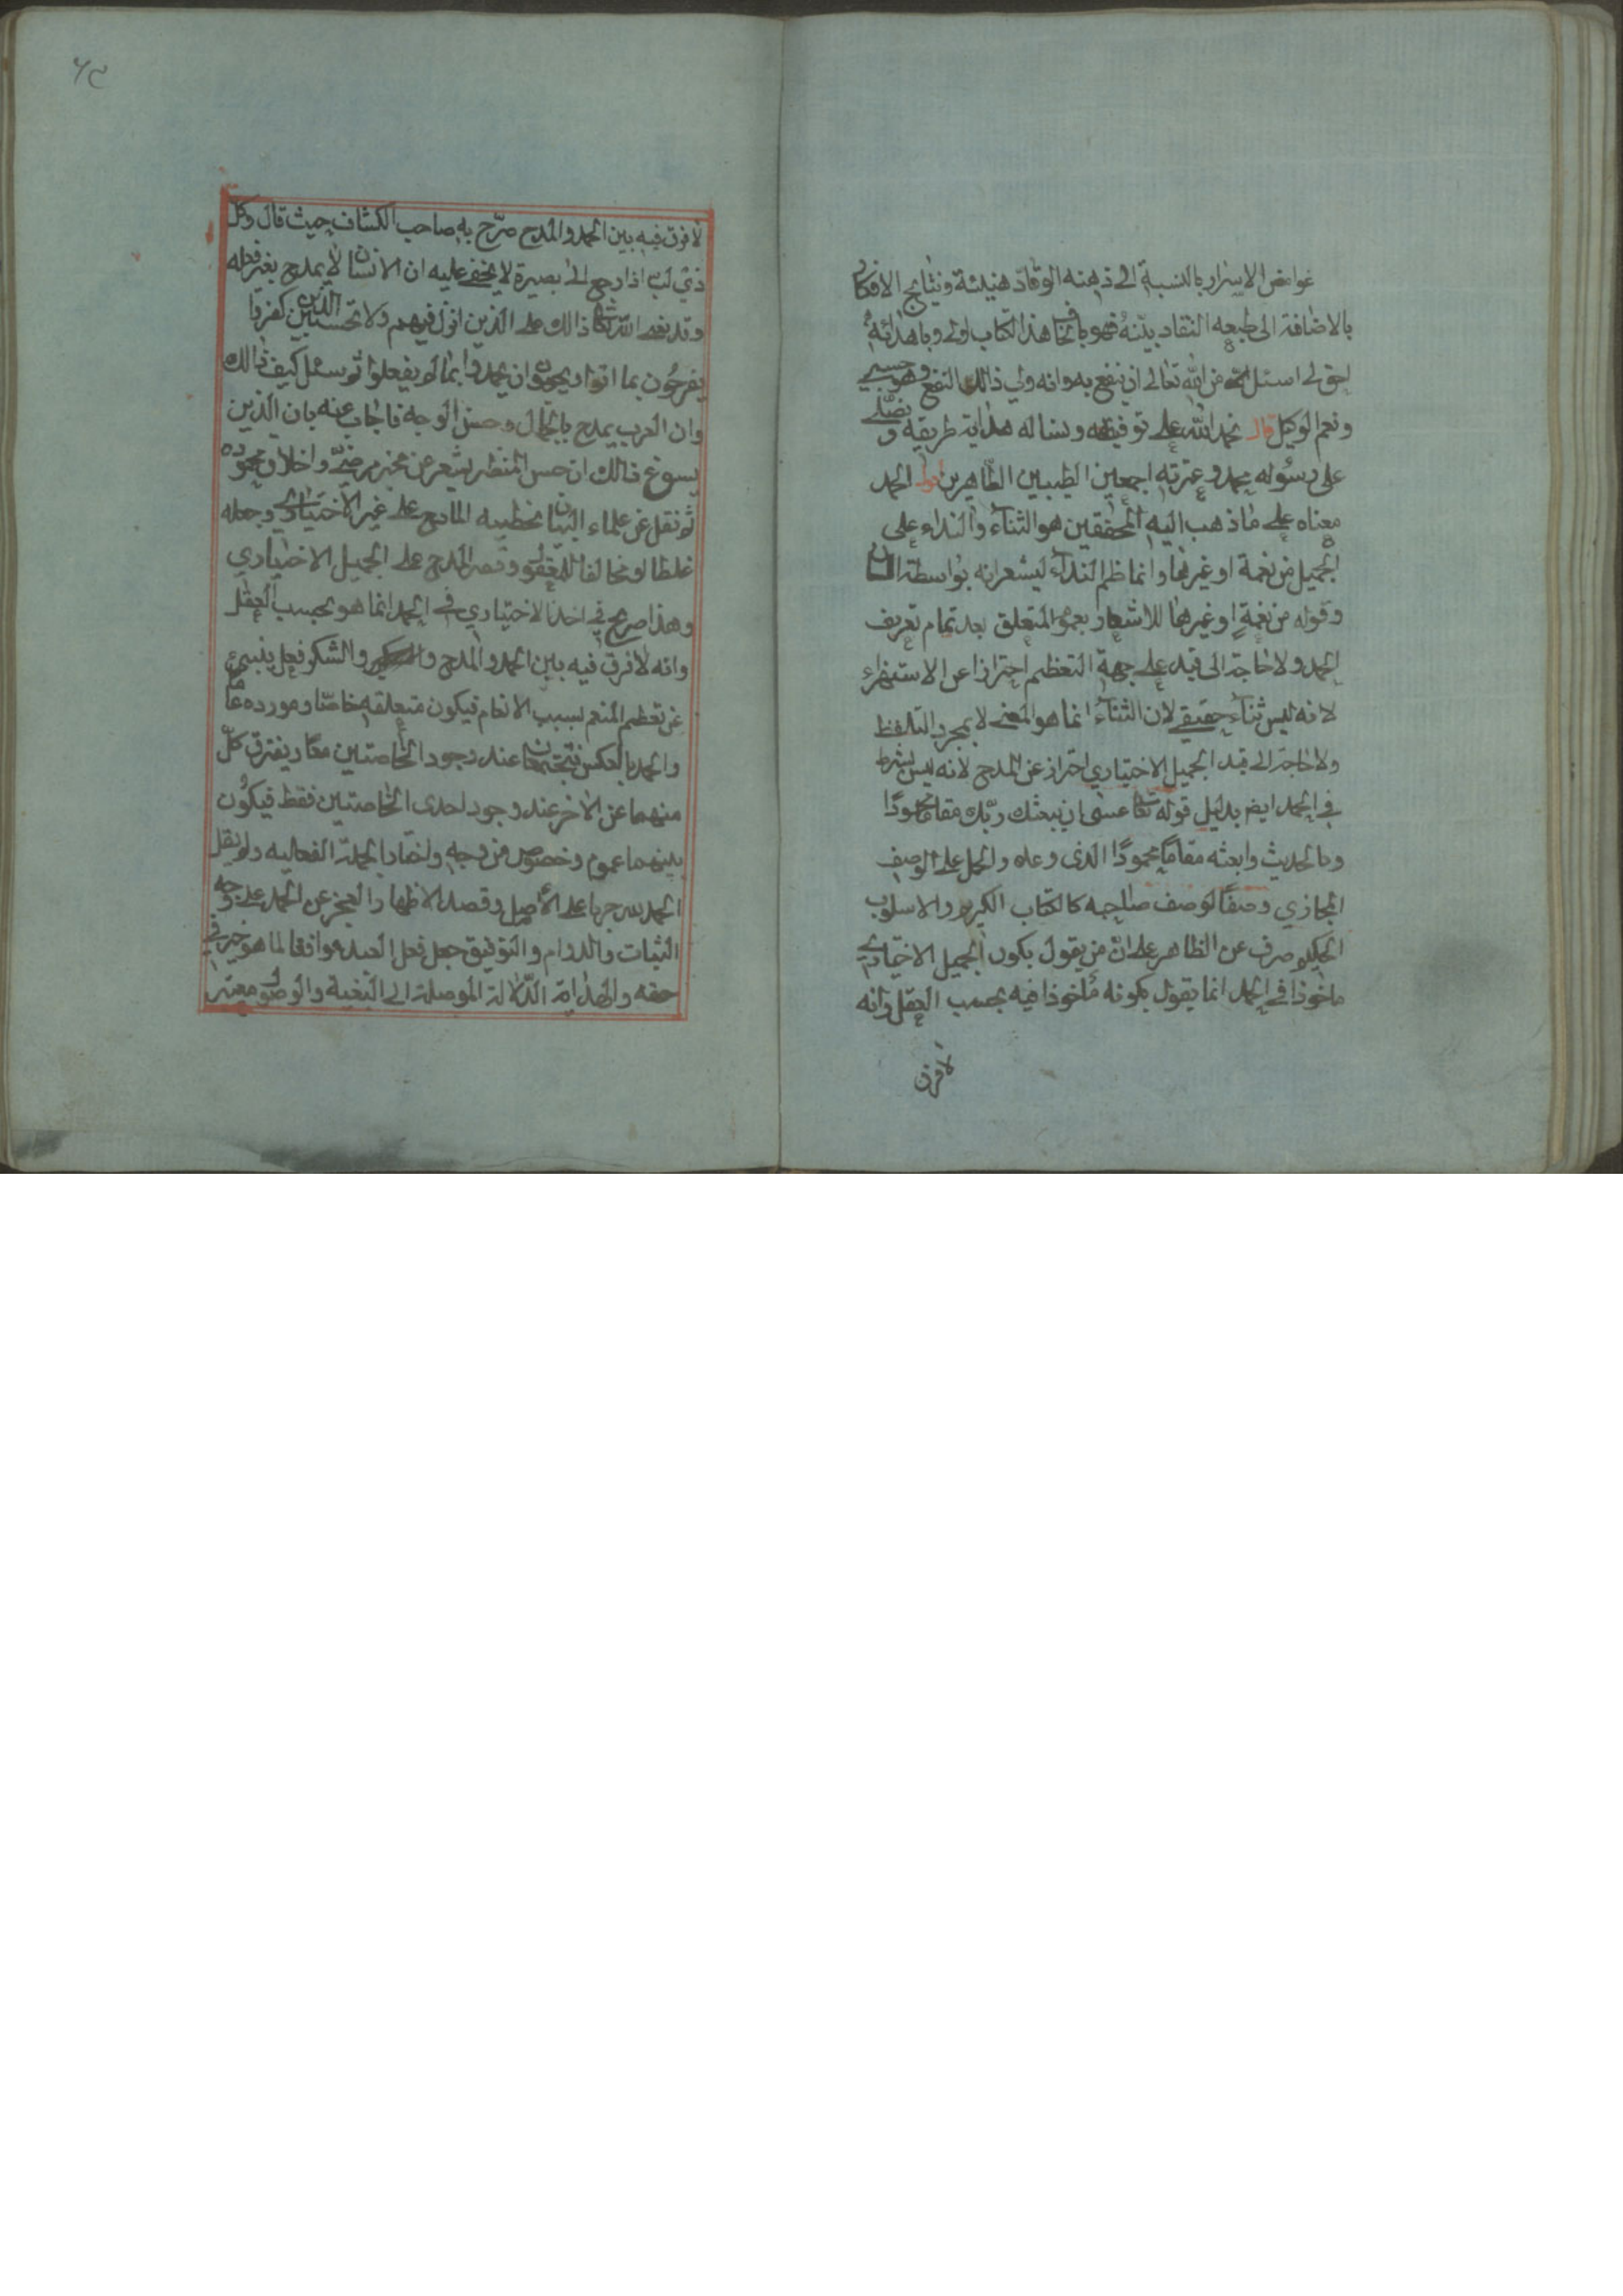 غوامض الاسرار بالنسبة الى ذهنه الوقاد هنيئة ونتايج الافكار
بالاضافة الى طبعه النقاد بيّنة فهو باتخا هذا الكتاب اولى وباهدائه
احق لى اسئل من الله تعالى ان ينفع به وانه ولي ذالك النفع وهو حسبي
ونعم الوكيل قال نحمد الله على توفيقه ونساله هداية طريقه و نصلّي
على رسوله محمد وعترته اجمعين الطيبين الطاهرين الحمد
معناه على ماذهب اليه المحققين هو الثناء والنداء على
الجميل من نعمة او غيرها وانما ظم النداء ليشعر انه بواسطة اللسان
وقوله من نعمة او غيرها للاشعار بعموم المتعلق بعد تمام تعريف
الحمد ولا حاجة الى قيد على جهة التعظيم احترازا عن الاستهزاء
لانه ليس ثناء حقيقي لان الثناء انما هو المعنى لا بمجرد التلفظ
ولا حاجة الى قيد الجميل الاختياري احتراز عن المدح لانه ليس بشرط
في الحمد ايض بدليل قوله تعا عسى ان يبعثك ربّك مقاما محمودًا
وما الحديث وابعثه مقامًا محمودًا الذى وعده والحمل على الوصف
المجازي وصفًا لوصف صاحبه كالكتاب الكريم والاسلوب
الحكيم صرف عن الظاهر على ان من يقول بكون الجميل الاختياري
ماخوذا في الحمد انما يقول بكونه مأخوذا فيه بحسب العقل وانه
لا فرق
٦٢
لا فرق فيه بين الحمد والمدح صرّح به صاحب الكشاف حيث قال وكل
ذي لبّ اذا رجع الى بصيرة لا يخفى عليه ان الانسان لا يمدح بغير فعله
وقد نعى الله تعا ذالك على الذين انزل فيهم ولا تحسبن الذين كفروا
يفرحون بما اتوا ويحبون ان يحمدوا بما لم يفعلوا ثم سئل كيف ذالك
وان العرب يمدح بالجمال وحسن الوجه فاجاب عنه بان الذين
يسوغ ذالك ان حسن المنظر يشعر عن مخبر مرضيّ واخلاق محموده
ثم نقل عن علماء البيان تخطيه المادح على غير الاختياري وجعله
غلطا لو مخالفا للمعقول وقصر المدح على الجميل الاختياري
وهذا صريح في اخذ الاختياري في الحمد انما هو بحسب العقل
وانه لا فرق فيه بين الحمد والمدح والشكر فعل ينبئ
عن تعظيم المنعم بسبب الانعام فيكون متعلقه خاصّا ومورده عامّا
والحمد بالعكس فيجتمعان عند وجود الخاصتين معًا ويفترق كلّ
منهما عن الاخر عند وجود احدى الخاصتين فقط فيكون
بينهما عموم وخصوص من وجه واختار الجملة الفعليه ولم يقل
الحمد لله جريا على الأصل وقصد الاظهار العجز عن الحمد على وجه
الثبات والدوام والتوفيق جعل فعل العبد موافقا لما هو خير في
حقه والهداية الدّلالة الموصلة الى البغية والوصول معتبر